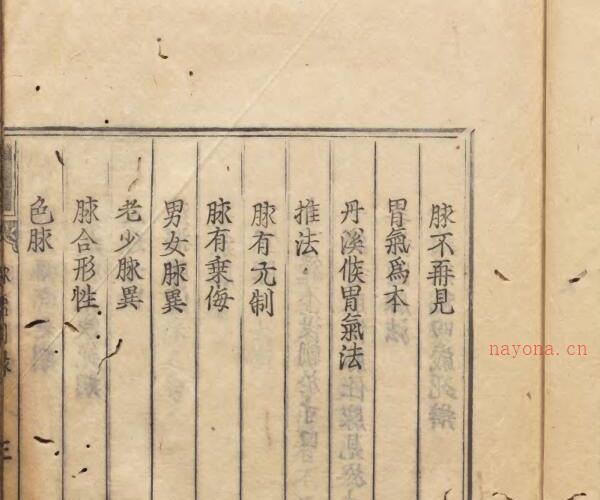 脉不再見
胃氣爲本
丹溪候胃氣法
推法
脉有亢制
脉有乘侮
男女脉異
老少脉異
脉合形性
色脉
nayona.cn